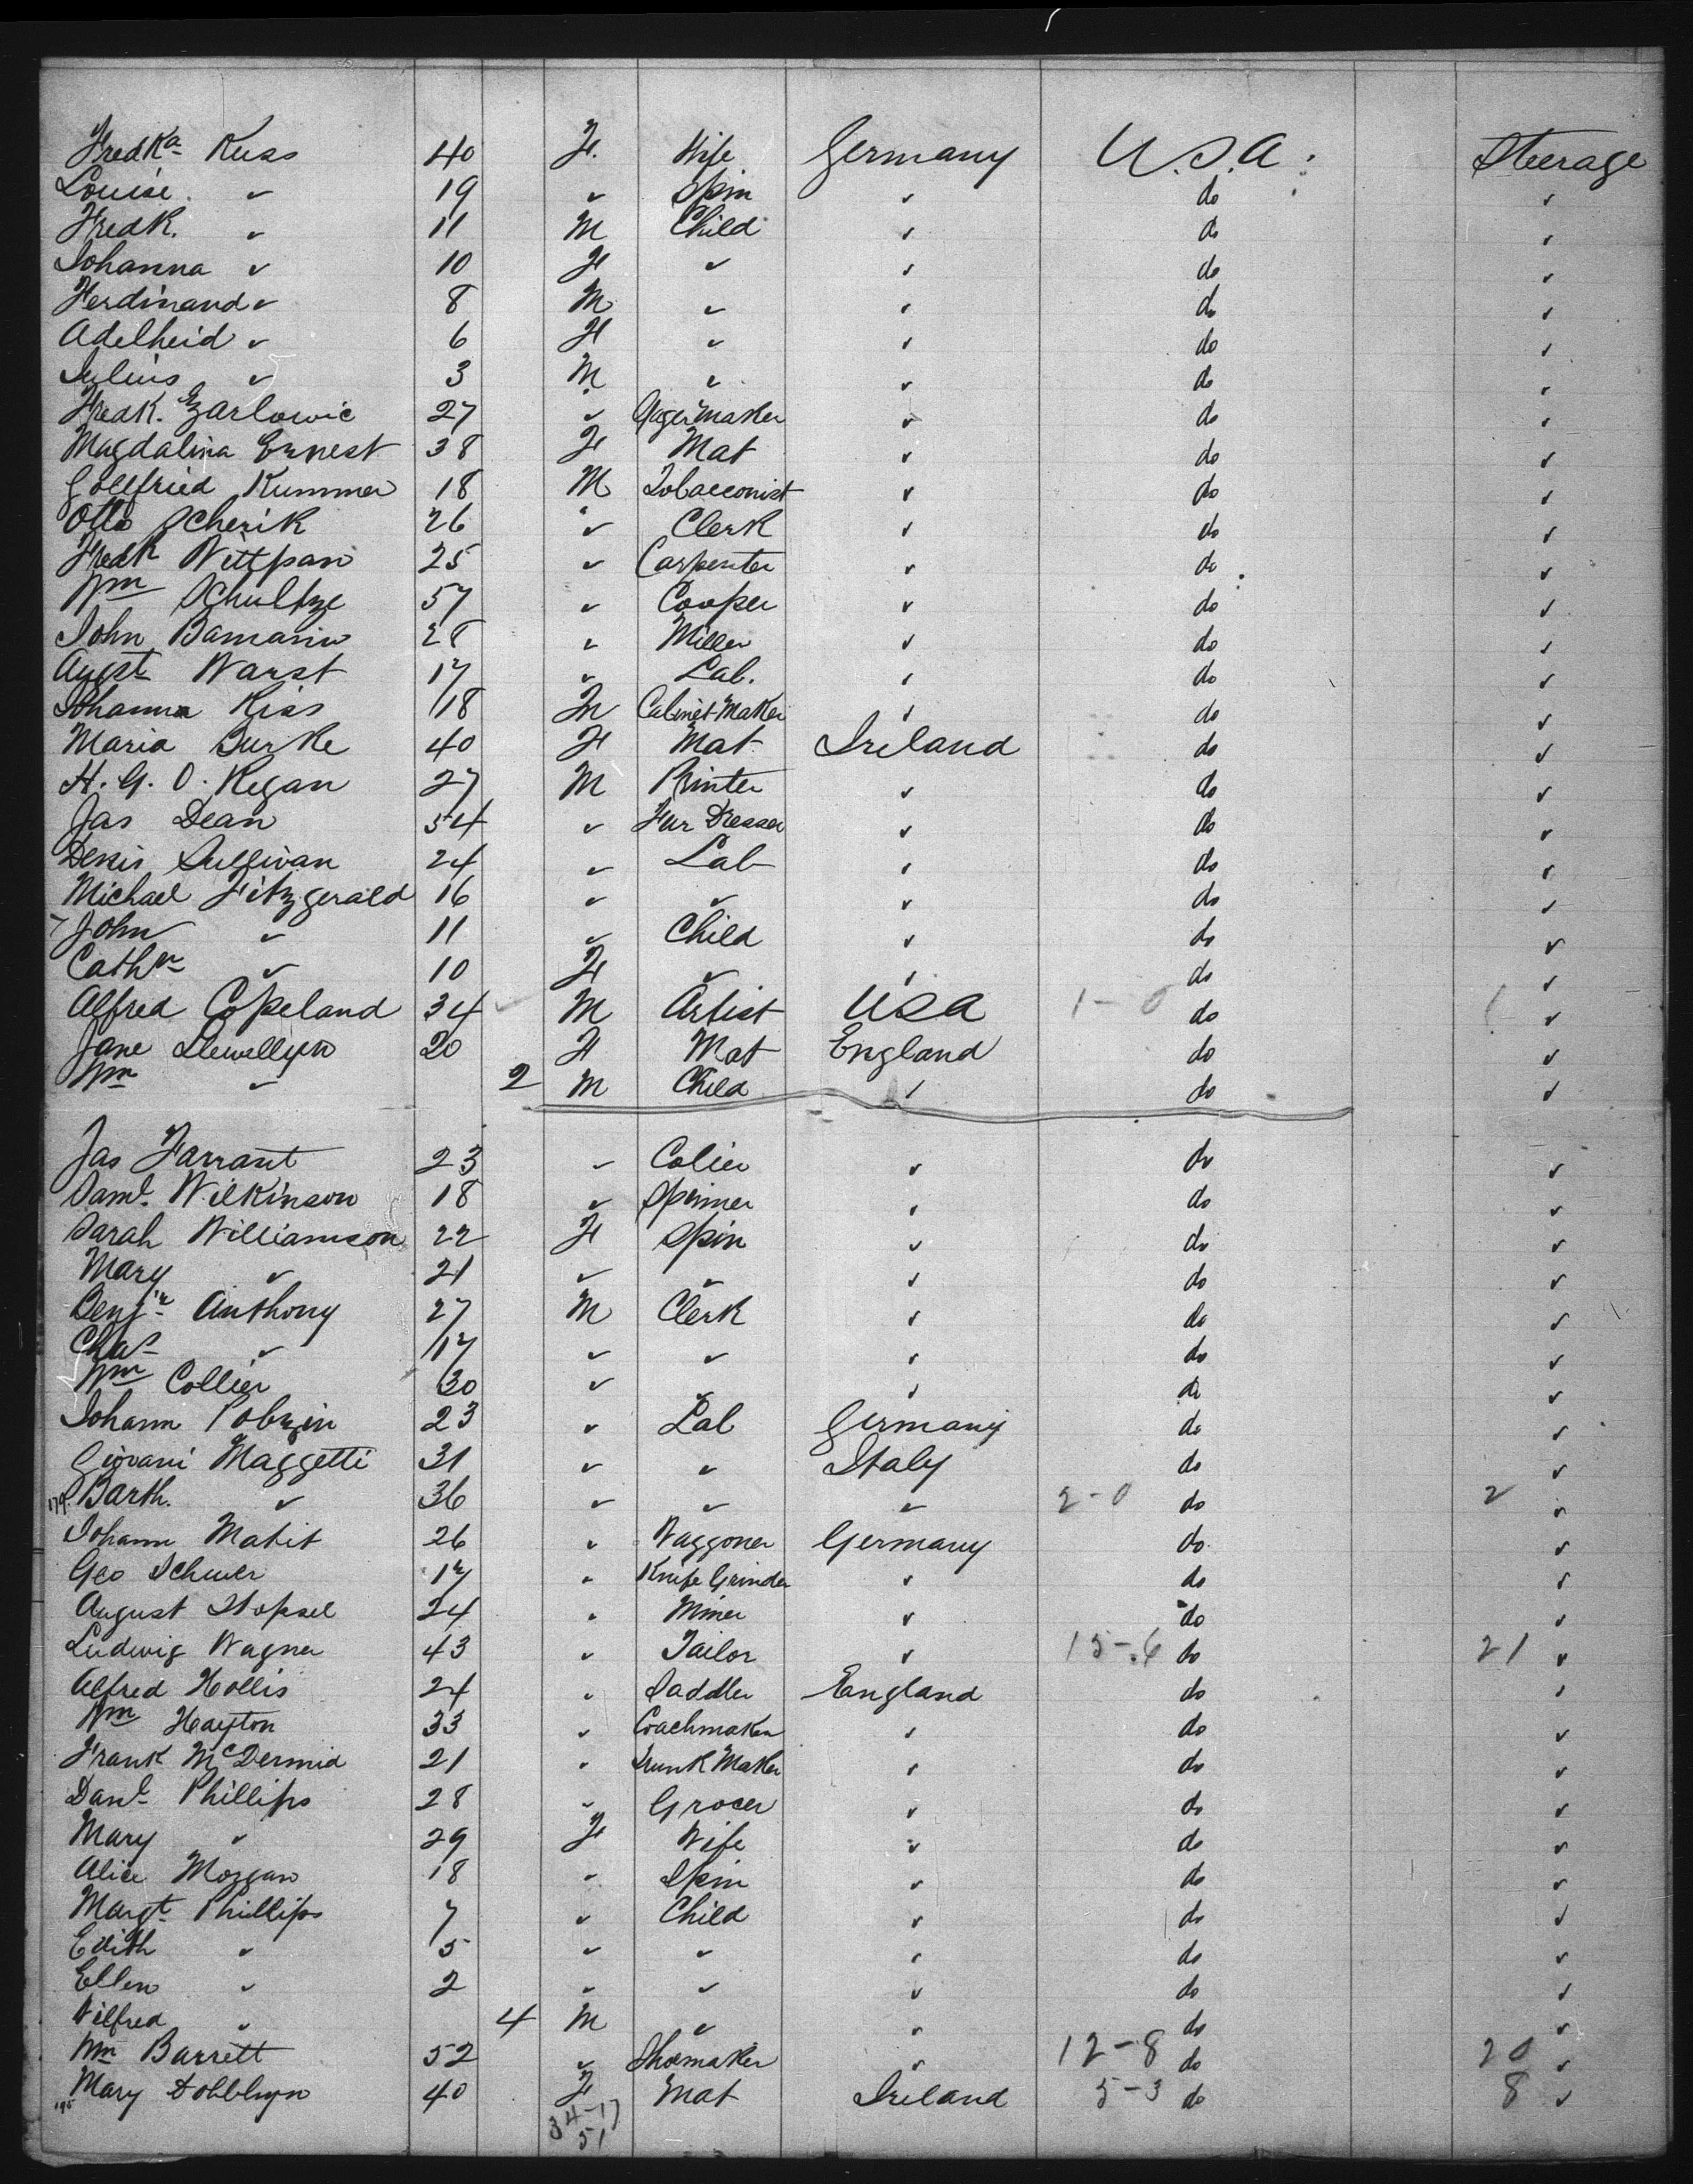 Fredka Kuss 40 F. Wife Germany U.S.A. Steerage
Louise ✓ 19 ✓ Spin ✓ do ✓
Fredk. ✓ 11 M Child ✓ do ✓
Johanna ✓ 10 F ✓ ✓ do ✓
Ferdinand ✓ 8 M ✓ ✓ do ✓
Adelheid ✓ 6 F ✓ ✓ do ✓
Julius ✓ 3 M ✓ ✓ do ✓
Fredk. 27 ✓ ✓ do ✓
Magdalina Ernest 38 F Mat ✓ do ✓
Gottfried Kummer 18 M Tobacconist ✓ do ✓
Otto Scherik 26 ✓ Clerk ✓ do ✓
Fredk Wittpan 25 ✓ Carpenter ✓ do ✓
Wm Schultze 57 ✓ Cooper ✓ do ✓
John Bamann 28 ✓ Miller ✓ do ✓
Augst Warst 17 ✓ Lab. ✓ do ✓
Johanna Kiss 18 M Cabinet Maker ✓ do ✓
Maria Burke 40 F Mat Ireland do ✓
H. G. O. Regan 27 M Printer ✓ do ✓
Jas Dean 54 ✓ Fur Dresser ✓ do ✓
Denis Sullivan 24 ✓ Lab ✓ do ✓
Michael Fitzgerald 16 ✓ ✓ ✓ do ✓
John ✓ 11 ✓ Child ✓ do ✓
Cathn ✓ 10 F ✓ ✓ do ✓
Alfred Copeland 34 M Artist USA 1-0 do 1 ✓
Jane Llewellyn 20 F Mat England do ✓
Wm ✓ 2 M Child ✓ do ✓
Jas Farrant 23 ✓ Colier ✓ do ✓
Saml. Wilkinson 18 ✓ Spinner ✓ do ✓
Sarah Williamson 22 F Spin ✓ do ✓
Mary ✓ 21 ✓ ✓ ✓ do ✓
Benjn Anthony 27 M Clerk ✓ do ✓
Chas ✓ 17 ✓ ✓ ✓ do ✓
Wm Collier 30 ✓ ✓ ✓ do ✓
Johann Pobzin 23 ✓ Lab Germany do ✓
Giovani Maggetti 31 ✓ ✓ Italy do ✓
Barth. ✓ 36 ✓ ✓ ✓ 2-0 do 2 ✓
Johann Matit 26 ✓ Waggoner Germany do ✓
Geo Schwer 17 ✓ Knife Grinder ✓ do ✓
August Stopsel 24 ✓ Miner ✓ do ✓
Ludwig Wagner 43 ✓ Tailor ✓ 15-6 do 21 ✓
Alfred Hollis 24 ✓ Saddler England do ✓
Wm Hayton 33 ✓ Coachmaker ✓ do ✓
Frank McDermid 21 ✓ Trunk Maker ✓ do ✓
Danl Phillips 28 ✓ Grocer ✓ do ✓
Mary ✓ 29 F Wife ✓ do ✓
Alice Morgan 18 ✓ Spin ✓ do ✓
Margt Phillips 7 ✓ Child ✓ do ✓
Edith ✓ 5 ✓ ✓ ✓ do ✓
Ellen ✓ 2 ✓ ✓ ✓ do ✓
Wilfred ✓ 4 M ✓ ✓ do ✓
Wm Barrett 52 ✓ Shomaker ✓ 12-8 do 20 ✓
Mary 40 F Mat Ireland 5-3 do 8 ✓
34-17
51